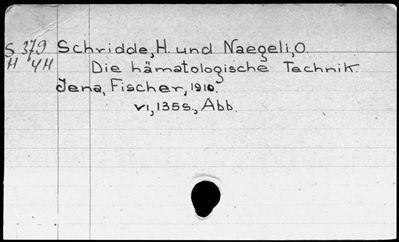 S 379 Schridde, H. und Naegeli, O.
H 4H Die hämatologische Technik.
Jena, Fischer, 1910.
VI, 135S., Abb.